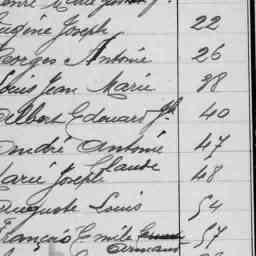 Eugène Joseph 22
Georges Antonie 26
Louis Jean Marie 28
Albert Edouard Jh 40
André Antonie 47
Marie Joseph Claude 48
Auguste Louis 54
François Emile Germain 57